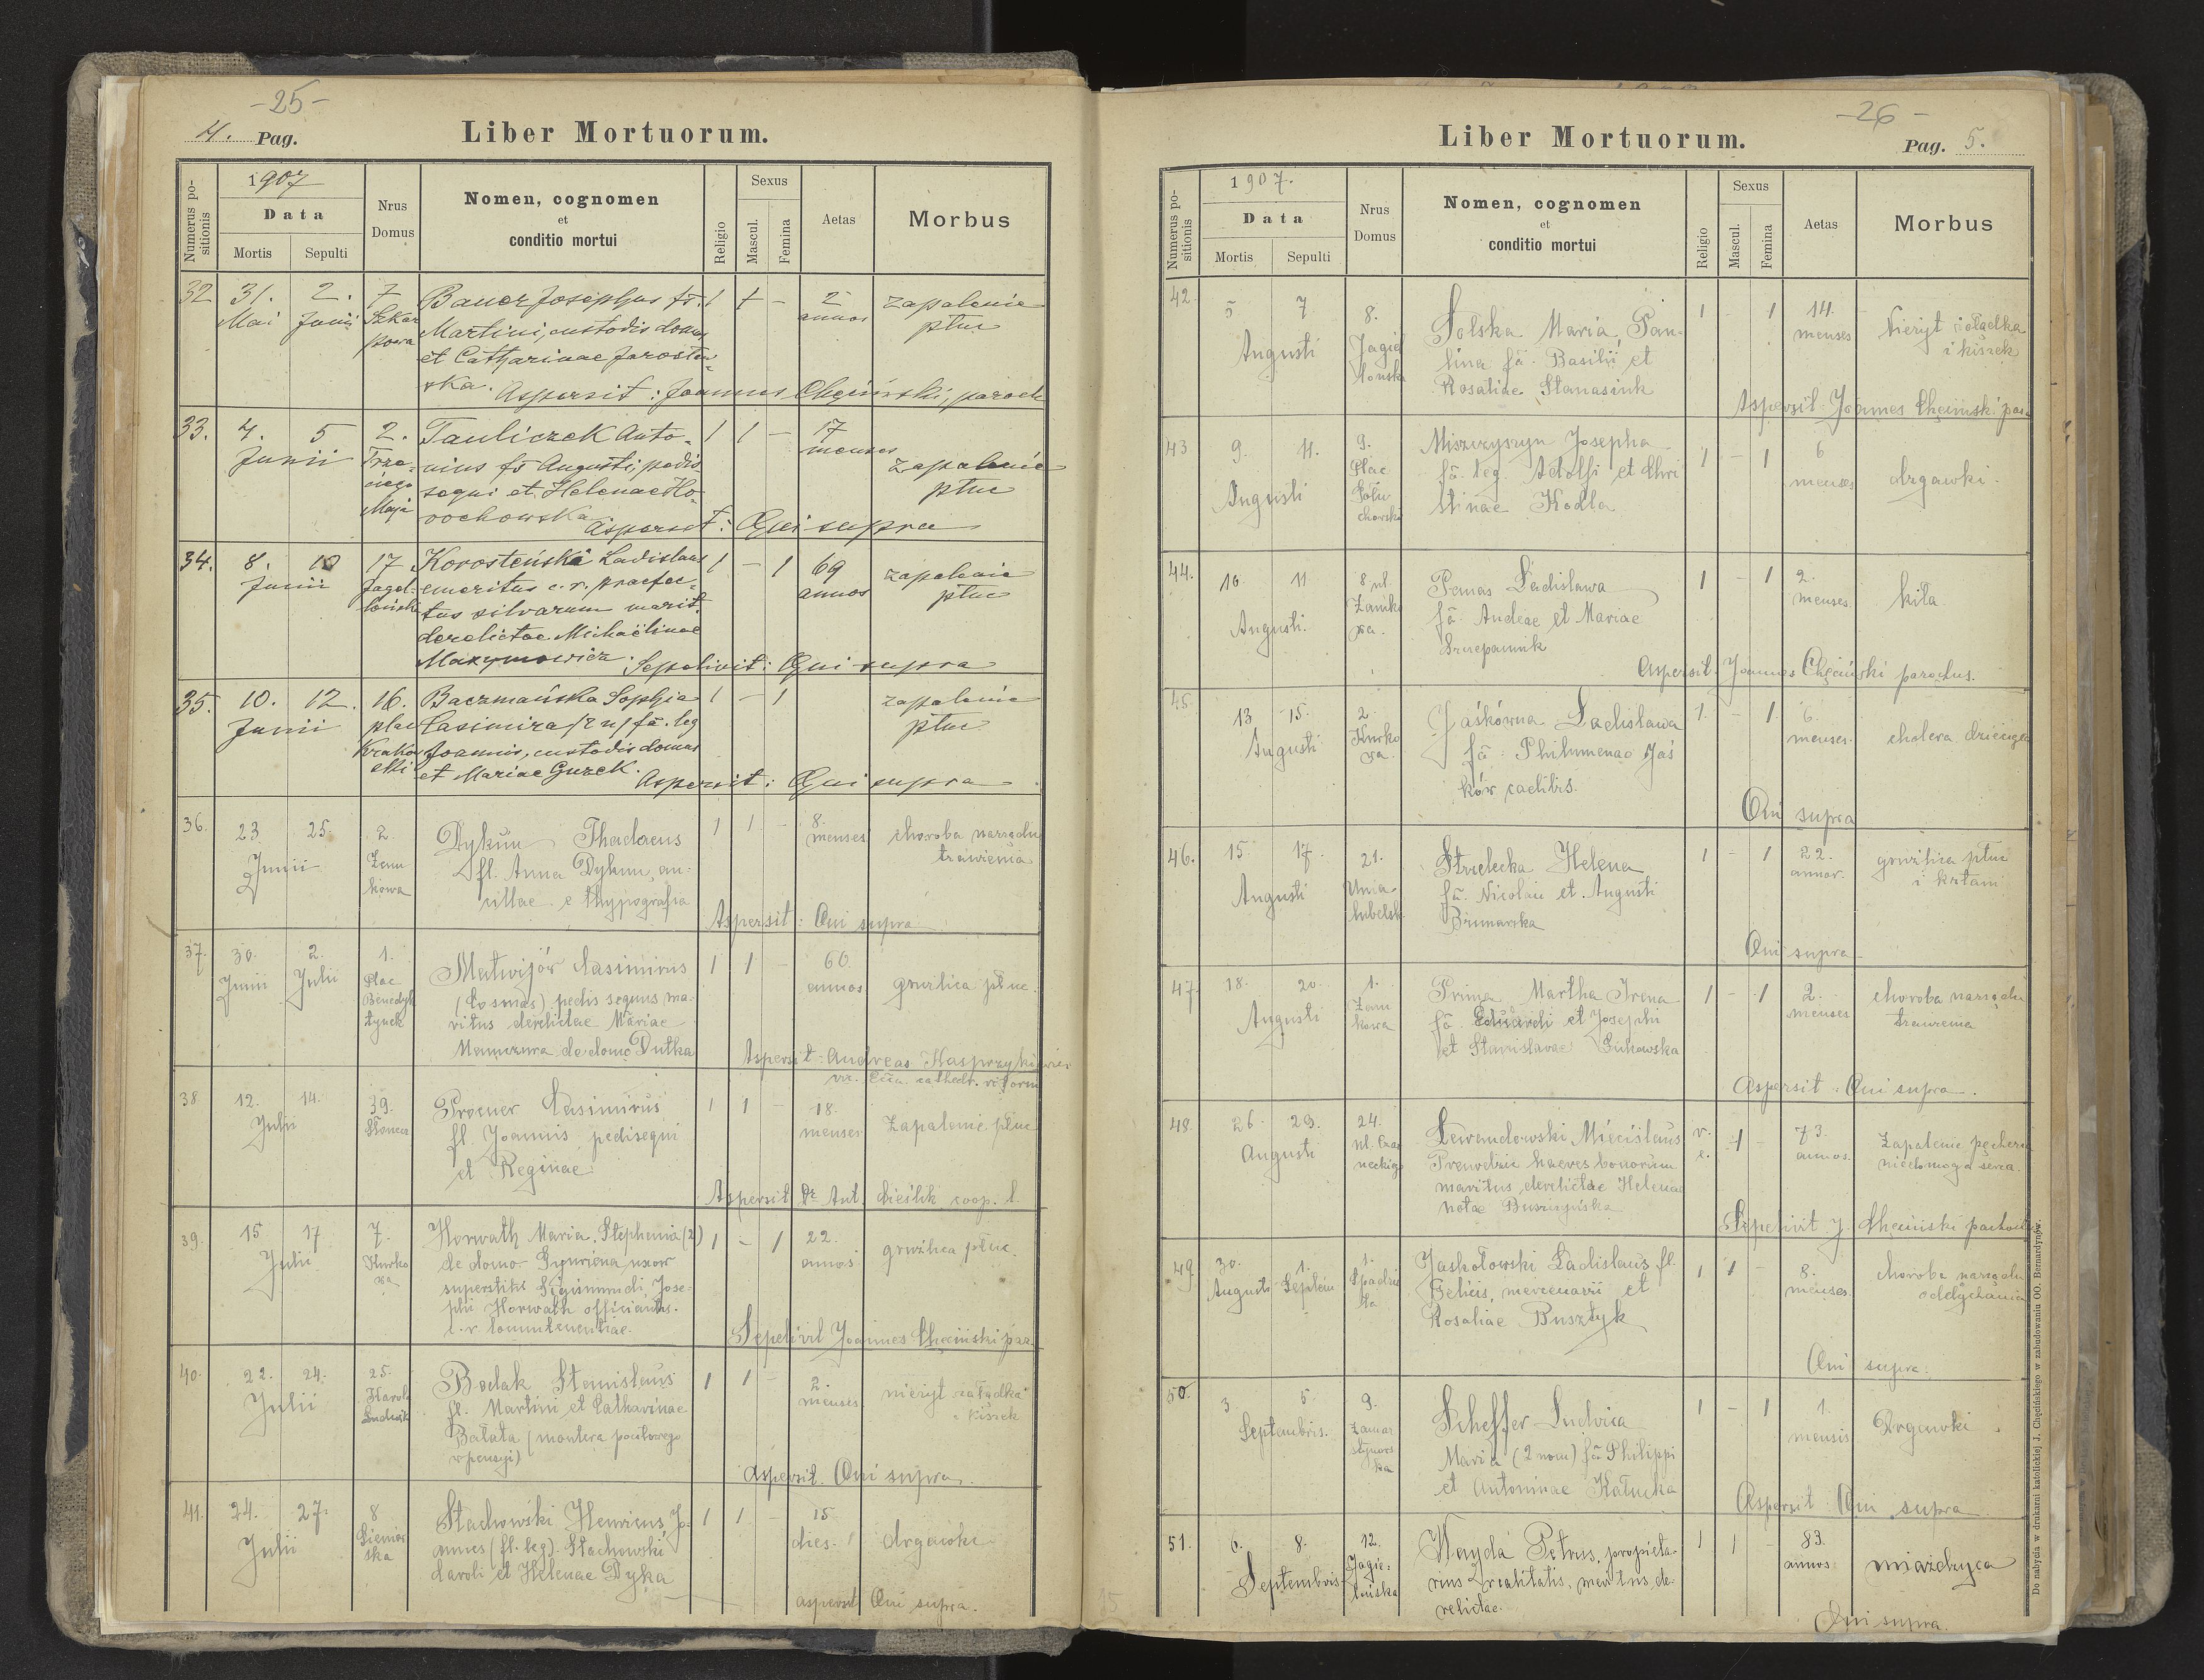 -25-
4. Pag.
Liber Mortuorum.
Numerus positionis
1907
Data
Mortis Sepulti
Nrus Domus
Nomen, cognomen
et
conditio mortui
Religio
Sexus
Mascul. Femina
Aetas
Morbus
32 31. Mai 2. Junii 7 Szkarpowa
Bauer Josephus fs.
Martini, custodis domus
et Catharinae Jarosten-
ska.
1 1 - 2 annos
zapalenie
płuc
Aspersit: Joannes Chęciński, paroch
33. 4. 5 Junii 2. Trzeciego Maja
Tauliczek Anto-
nius fs Augusti, pedis
sequi et Helenae Ho-
rochowska.
1 1 - 17 menses
zapalenie
płuc
Aspersit: Qui supra
34. 8. 10 Junii 17 Jagielońsk
Korosteński Ladislaus
emeritus c. r. praefec-
tus silvarum marit.
derelictae Michaëlinae
Maxymowicz.
1 - 1 69 annos
zapalenie
płuc
Sepelivit: Qui supra
35. 10. 12. Junii 16. plac Krakowski
Baczmańska Sophia
Casimira /2 n/ fa. leg
Joannis, custodis domus
et Mariae Guzek.
1 - 1
zapalenie
płuc
Aspersit: Qui supra
36. 23 25. Junii 2. Zamkowa
Dykun Thadaeus
fl. Anna Dykun, an-
cillae e thypografia
1 1 - 8. menses
choroba narządu
trawienia
Aspersit: Qui supra
37. 30. Junii 2. Julii 1. Plac Benedyktynek
Matwijów Casimirus
(Cosmas) pedis sequus ma-
ritus derelictae Mariae
de domo Dutka
1 1 - 60. annos
gruźlica płuc.
Aspersit: Andreas Kasprzykiewicz
38. 12. 14. Julii 39. Słonecz
Procner Casimirus
fl. Joannis pedisequi
et Reginae
1 1 - 18. menses
Zapalenie płuc
Aspersit Dr Ant. Cieślik coop. l.
39. 15 17 Julii 7. Kurkowa
Horwath Maria Stephania (2)
de domo uxor
superstitis Sigismundi Jose-
phi Horwath officiantis.
c. r.
1 - 1 22. annos
gruźlica płuc.
Sepelivit Joannes Chęciński par.
40. 22. 24. Julii 25. Karola Ludwika
Bodak Stanislaus
fl. Martini et Catharinae
Bałata (montera pocztowego
w pensyi)
1 1 - 2. menses
nieżyt żołądka
i kiszek
Aspersit. Qui supra.
41. 24. 27. Julii 8 Sieniawska
Stachowski Henricus, Jo-
annes (fl. leg). Stachowski
Caroli et Helenae Dyka
1 1 - 15 dies.
drgawki
aspersit Qui supra.
-26-
Liber Mortuorum.
Pag. 5.
Numerus positionis
1907.
Data
Mortis Sepulti
Nrus Domus
Nomen, cognomen
et
conditio mortui
Religio
Sexus
Mascul. Femina
Aetas
Morbus
42 5 7 Augusti 8. Jagiellonska
Solska Maria, Pau-
lina fa. Basilii et
Rosaliae Stanasiuk
1 - 1 14. menses
Nieżyt żołądka
i kiszek
Aspersit Joannes Chęciński par.
43 9. 11. Augusti 9. Plac Gołuchowski
Miszczyszyn Josepha
fa. leg. Adolfi et Chri
stinae Kodla
1 - 1 6 menses
drgawki.
44. 10. 11 Augusti. 8 ul. Zamkowa.
Pemas Ladislawa
fa. Andeae et Mariae
Szczepannik
1 - 1 2. menses.
kiła
Aspersit. Joannes Chęciński parochus.
45 13 15. Augusti 2. Kurkowa.
Jaśkówna Ladislawa
fa. Philumenae Jaś
ków caelibis.
1. - 1. 6. menses.
cholera dziecięca
Qui supra
46. 15. 17. Augusti 21. Unia lubelsk
Strzelecka Helena
fa. Nicolai et Augusti
1 - 1 22. annor.
gruźlica płuc
i krtani
Qui supra
47. 18. 20. Augusti 1. Zamkowa
Martha Irena
fa. Eduardi et Josephi
et Stanislavae
1 - 1 2. menses
choroba narządu
trawienia
Aspersit: Qui supra.
48. 26. 29. Augusti 24. ul. Czarneckiego
Lewandowski Miecislaus
haeres bonorum
maritus derelictae Helenae
natae Buszczyńska
r. l. 1 - 73. annos.
Zapalenie pęcherza
niedomoga serca.
Sepelivit J. Chęciński parochus
49. 30. Augusti 1. Septem 1. Spadzista
Jaskołowski Ladislaus fl.
Felicis, mercenarii et
Rosaliae Busztyk
1 1 - 8. menses.
choroba narządu
oddychania
Qui supra.
50. 3 5. Septembris. 9. Zamarstynowska
Scheffer Ludvica
Maria (2 nom) fa Philippi
et Antoninae Kałucka
1 - 1 1. mensis
Drgawki
Aspersit Qui supra
51. 6. 8. Septembris 12. Jagielońska
Wayda Petrus, proprieta-
rius realitatis, maritus de-
relictae.
1 1 - 83. annos
miażdżyca
Qui supra.
Do nabycia w drukarni katolickiej J. Chęcińskiego w zabudowaniu OO. Bernardynów.